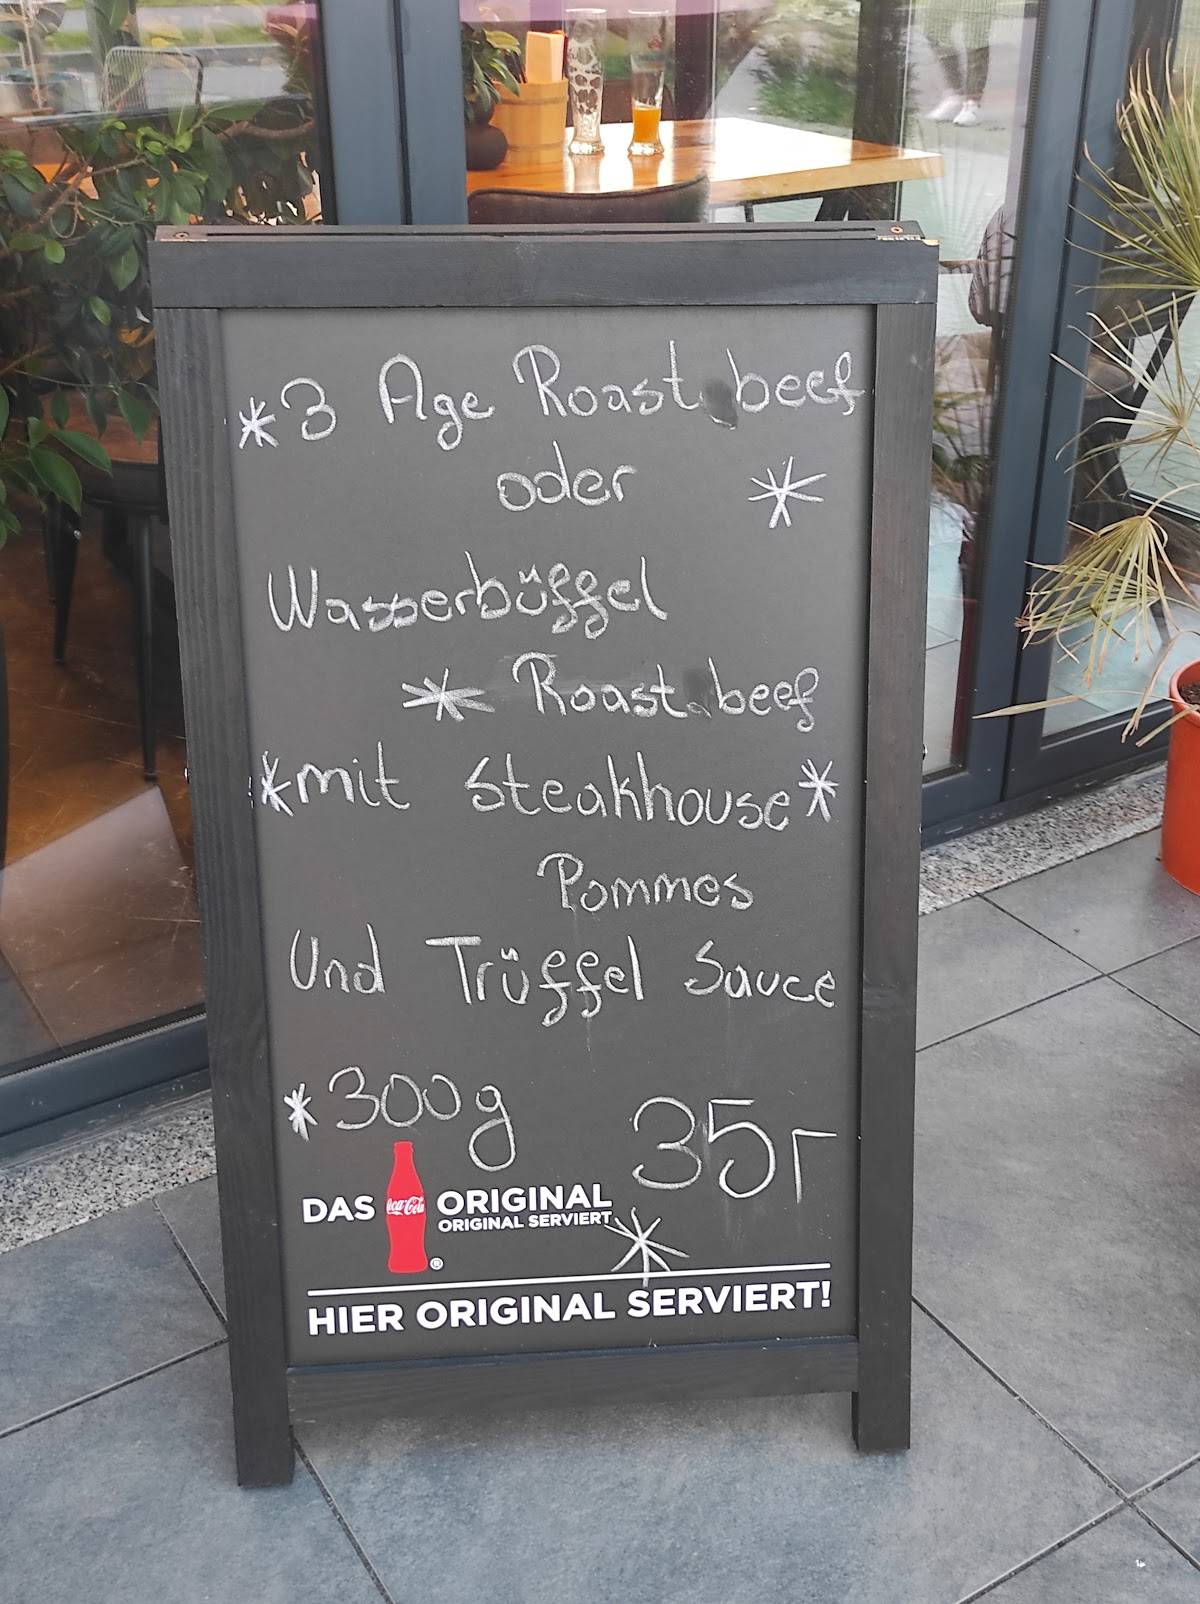 *3 Age Roast beef
oder *
Wasserbüffel
* Roast beef
*mit Steakhouse*
Pommes
Und Trüffel Sauce
*300g 35,-
DAS Coca-Cola ORIGINAL
ORIGINAL SERVIERT
®
*
HIER ORIGINAL SERVIERT!